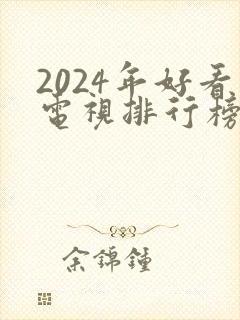 2024年好看
电視排行榜
余錦鐘